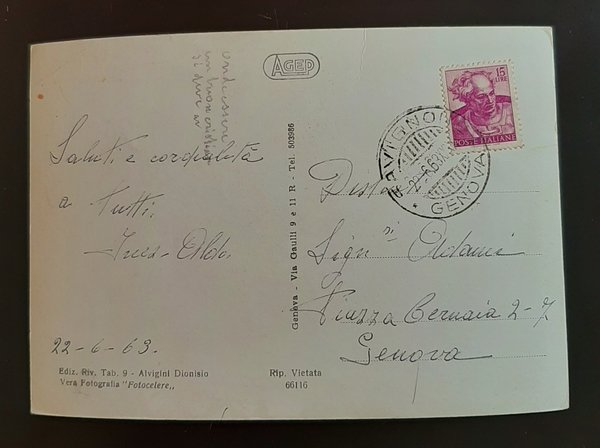 AGEP
Saluti e cordialità
a Tutti.
Ines-Aldo.
22-6-63.
Ediz. Riv. Tab. 9 - Alvigini Dionisio
Vera Fotografia "Fotocelere„
Rip. Vietata
66116
Genova - Via Gaulli 9 e 11 R - Tel. 503986
15
LIRE
POSTE ITALIANE
AVIGNO
22-6.63
GENOVA
Dist
Sigri
Piazza Cernaia 2-7
Genova